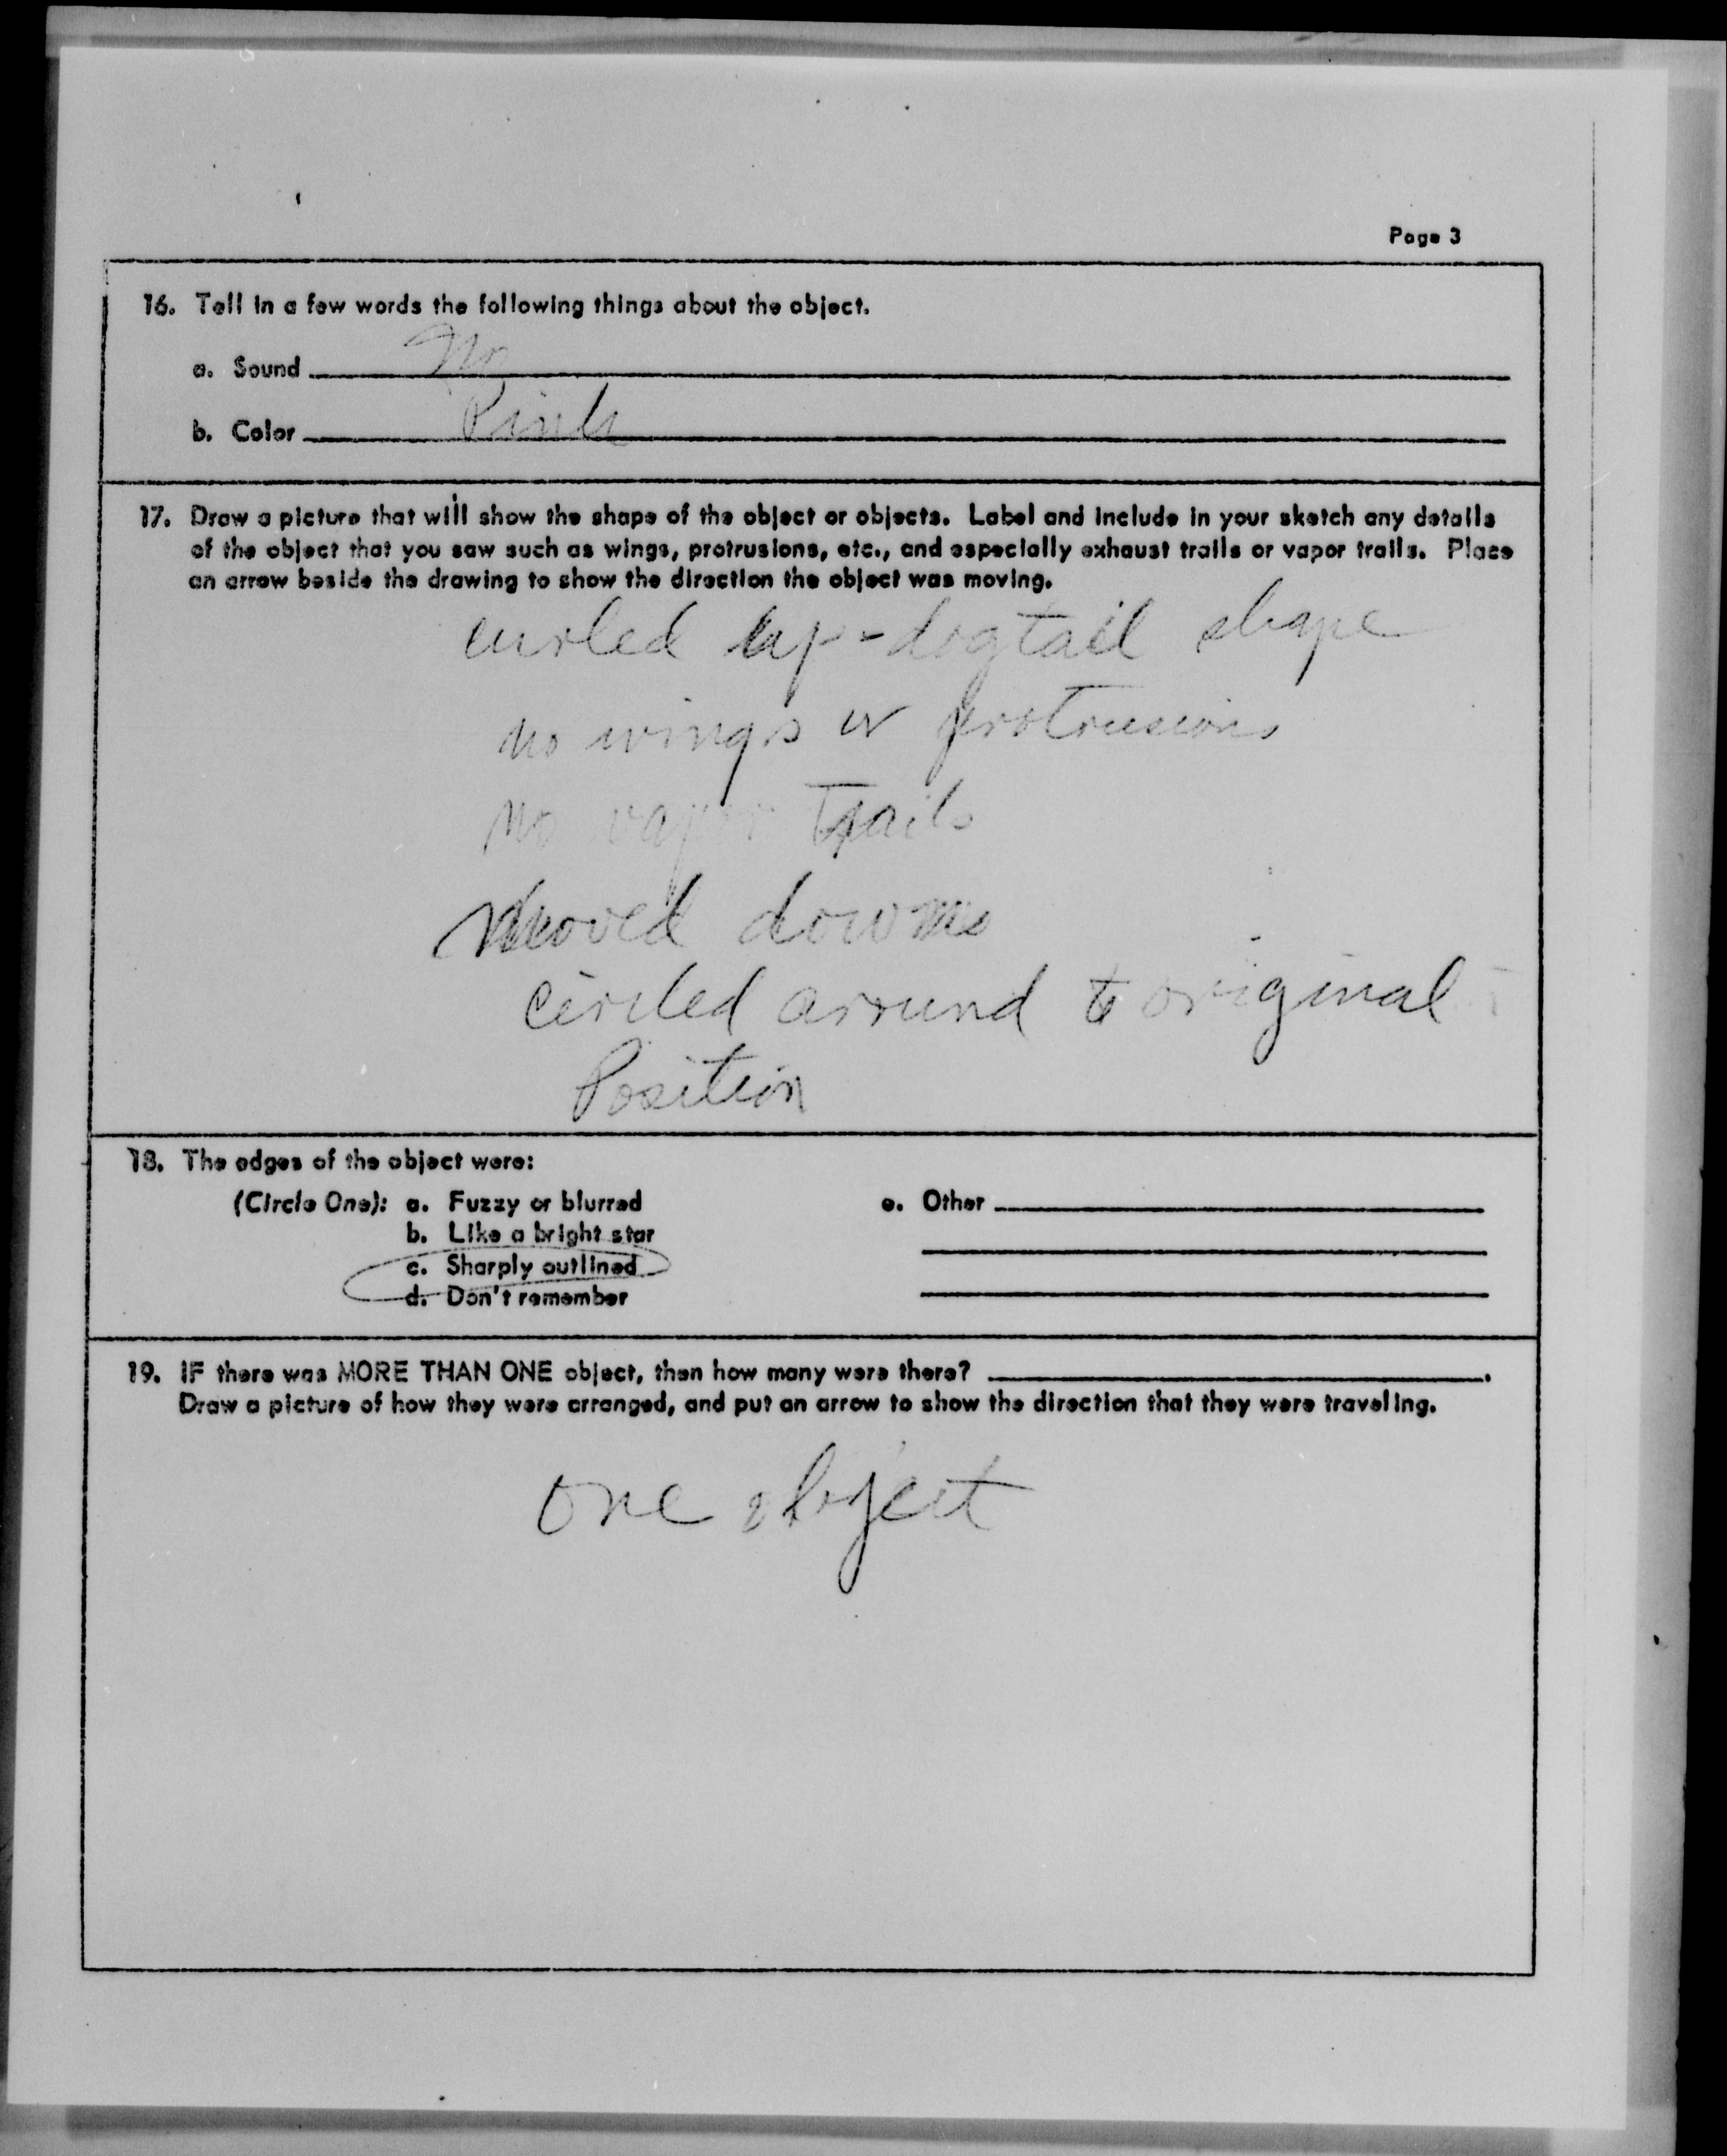 Page 3
16. Tell in a few words the following things about the object.
a. Sound No
b. Color Pink
17. Draw a picture that will show the shape of the object or objects. Label and include in your sketch any details
of the object that you saw such as wings, protrusions, etc., and especially exhaust trails or vapor trails. Place
an arrow beside the drawing to show the direction the object was moving.
curled up-dogtail shape
no wings or protrusions
no vapor Trails
Moved down
circled around to original
Position
18. The edges of the object were:
(Circle One): a. Fuzzy or blurred e. Other
b. Like a bright star
c. Sharply outlined
d. Don't remember
19. IF there was MORE THAN ONE object, then how many were there?
Draw a picture of how they were arranged, and put an arrow to show the direction that they were traveling.
one object